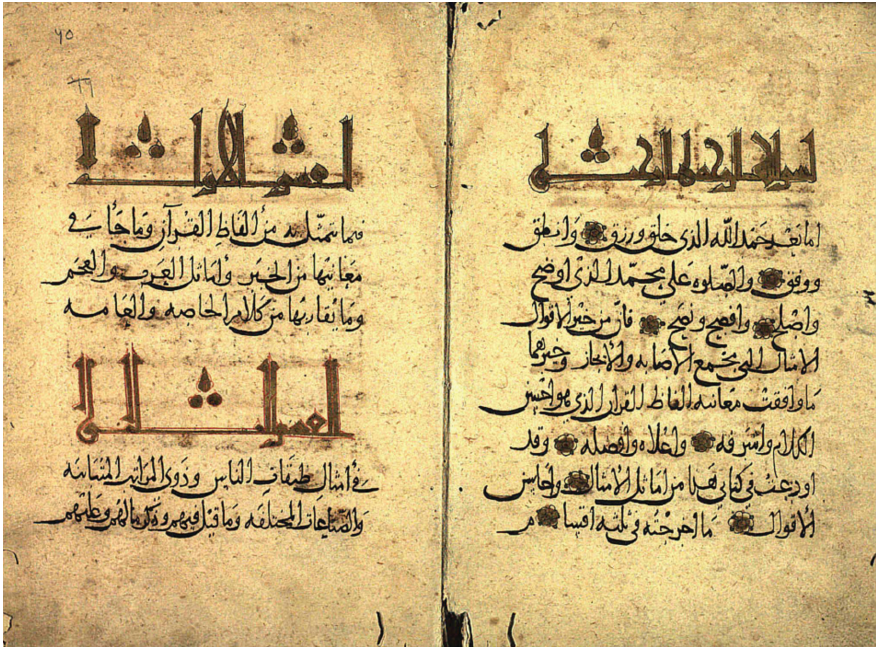 بسم الله الرحمن الرحيم
اما بعد حمد الله الذى خلق ورزق وانطق
ووفق والصلوه على محمد الذى اوضح
واصلح وافصح ونصح فان من خير الاقوال
الامثال التى تجمع الاصابه والايجاز وخيرهما
ما وافقت معانيه الفاظ القران الذي هو احسن
الكلام واشرفه واعلاه وافضله وقد
اودعت فى كتابى هذا من اماثل الامثال واحاسن
الاقوال ما اخرجته فى ثلثه اقسام
٢٥
القسم الاول
فيما يتمثل به من ألفاظ القرآن وما جأ في
معانيها من الخبر وأماثل العرب والعجم
وما يقاربها من كلام الخاصه والعامه
القسم الثانى
في أمثال طبقات الناس وذوى المراتب المتباينه
والصناعات المختلفه وما قيل فيهم وذكر مالهم وعليهم